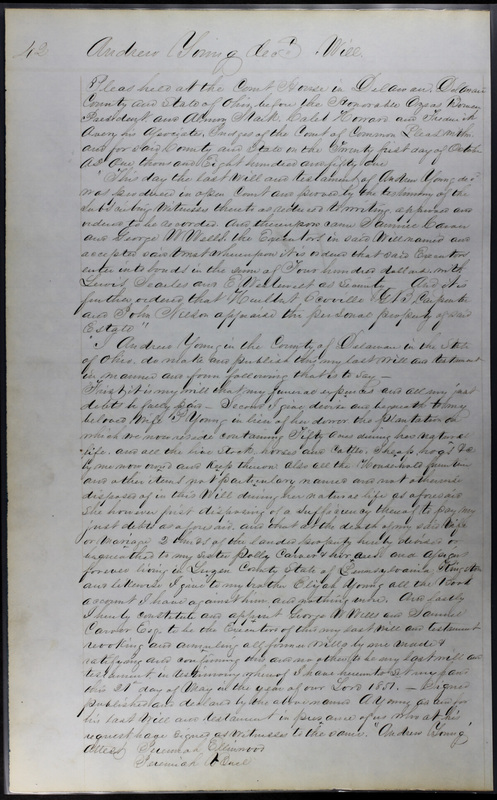 42 Andrew Young decd Will
Pleas held at the Court House in Delaware, Delaware
County and State of Ohio, before the Honorable Ozias Bowen
President and Almon Stark Calet Howard and Frederick
Avery his Associate Judges of the Court of Common Pleas within
and for said County and State in the Twenty first day of October
AD One thousand Eight hundred and fifty one
This day the last Will and testament of Andrew Young decd
was produced in open Court and proved by the testimony of the
subscribing Witnesses thereto as reduced to writing approved and
ordered to be recorded And thereupon came Samuel Carver
and George W Wells the Executors in said Will named and
accepted said trust whereupon it is ordered that said Executors
enter into bonds in the sum of Four hundred dollars with
Lewis Searles and as Security And it is
further ordered that Hurlbut Scoville G T Carpenter
and John Wilson appraise the personal property of said
Estate"
"I Andrew Young in the County of Delaware in the State
of Ohio do make and publish this my last Will and testament
in manner and form following that is to say —
First, it is my will that my funeral expences and all my just
debts be fully paid — Second I give devise and bequeath to my
beloved Wife Young in lieu of her dower the plantation on
which we now reside containing Fifty Acres during her natural
life and all the live stock, horses and Cattle, Sheep, hogs &c
by me now owned and kept thereon also all the Household furniture
and other items not particulary named and not otherwise
disposed of in this Will during her natural life as aforesaid
She however first disposing of a sufficiency thereof to pay my
just debts as aforesaid. and that at the death of my said Wife
or Marriage 2 thirds of the landed property hereby devised or
bequeathed to my sister Polly Carver & her heirs and assigns
forever living in County State of Pennsylvania Kingston
and likewise I give to my brother Elijah Young all the Book
account I have against him and nothing more. And lastly
I hereby constitute and appoint George W Wells and Samuel
Carver Esq. to be the Executors of this my last will and testament
revoking and annulling all former Wills by me made &
ratifying and confirming this and no other to be my last will and
testament, in testimony whereof I have hereunto set my hand
this 21st day of May in the year of our Lord 1851. — Signed
published and declared by the above named A Young as and for
his last Will and testament in presence of us who at his
request have signed as Witnesses to the same. "Andrew Young"
Attest Jeremiah Ellinwood
Jeremiah